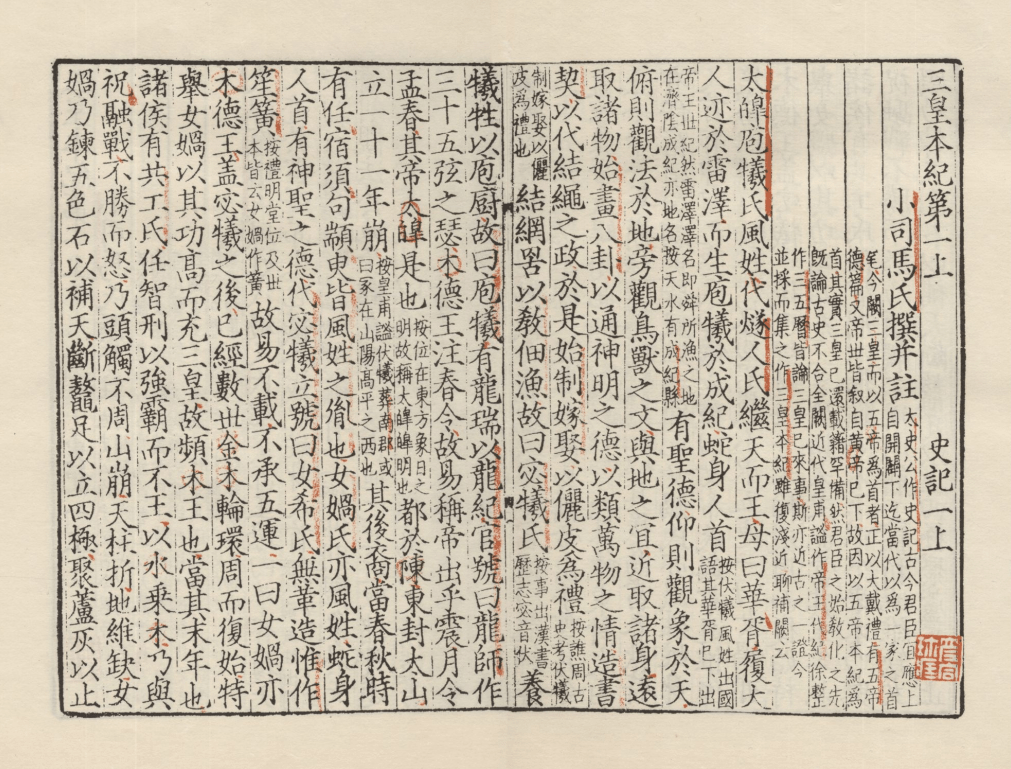 三皇本紀第一上　史記一上
小司馬氏撰并註
太史公作史記古今君臣宜應上
自開闢下迄當代以為一家之首
今闕三皇而以五帝為首者正以大戴禮有五帝
德篇又帝世皆叙自黃帝已下故因以五帝本紀為
首其實三皇已還載籍罕備然君臣之始敎化之先
既論古史不合全闕近代皇甫謐作帝王代紀徐整
作三五曆皆論三皇已來事斯亦近古之一證今
並採而集之作三皇本紀雖復淺近聊補闕云
太皥庖犧氏風姓代燧人氏繼天而王母曰華胥履大
人迹於雷澤而生庖犧於成紀蛇身人首
按伏犧風姓出國
語其華胥已下出
帝王世紀然雷澤澤名即舜所漁之地
在濟陰成紀亦地名按天水有成紀縣
有聖德仰則觀象於天
俯則觀法於地旁觀鳥獸之文與地之宜近取諸身遠
取諸物始畫八卦以通神明之德以類萬物之情造書
契以代結繩之政於是始制嫁娶以儷皮為禮
按譙周古
史考伏犧
制嫁娶以儷
皮為禮也
結網罟以敎佃漁故曰宓犧氏
按事出漢書
歷志宓音伏
養
犧牲以庖廚故曰庖犧有龍瑞以龍紀官號曰龍師作
三十五弦之瑟木德王注春令故易稱帝出乎震月令
孟春其帝太皥是也
按位在東方象日之
明故稱太皥皥明也
都於陳東封太山
立一十一年崩
按皇甫謐伏犧葬南郡或
曰冢在山陽高平之西也
其後裔當春秋時
有任宿須句顓臾皆風姓之胤也女媧氏亦風姓蛇身
人首有神聖之德代宓犧立號曰女希氏無革造惟作
笙簧
按禮明堂位及世
本皆云女媧作簧
故易不載不承五運一曰女媧亦
木德王盖宓犧之後已經數世金木輪環周而復始特
舉女媧以其功高而充三皇故頻木王也當其末年也
諸侯有共工氏任智刑以強霸而不王以水乘木乃與
祝融戰不勝而怒乃頭觸不周山崩天柱折地維缺女
媧乃鍊五色石以補天斷鼇足以立四極聚蘆灰以止